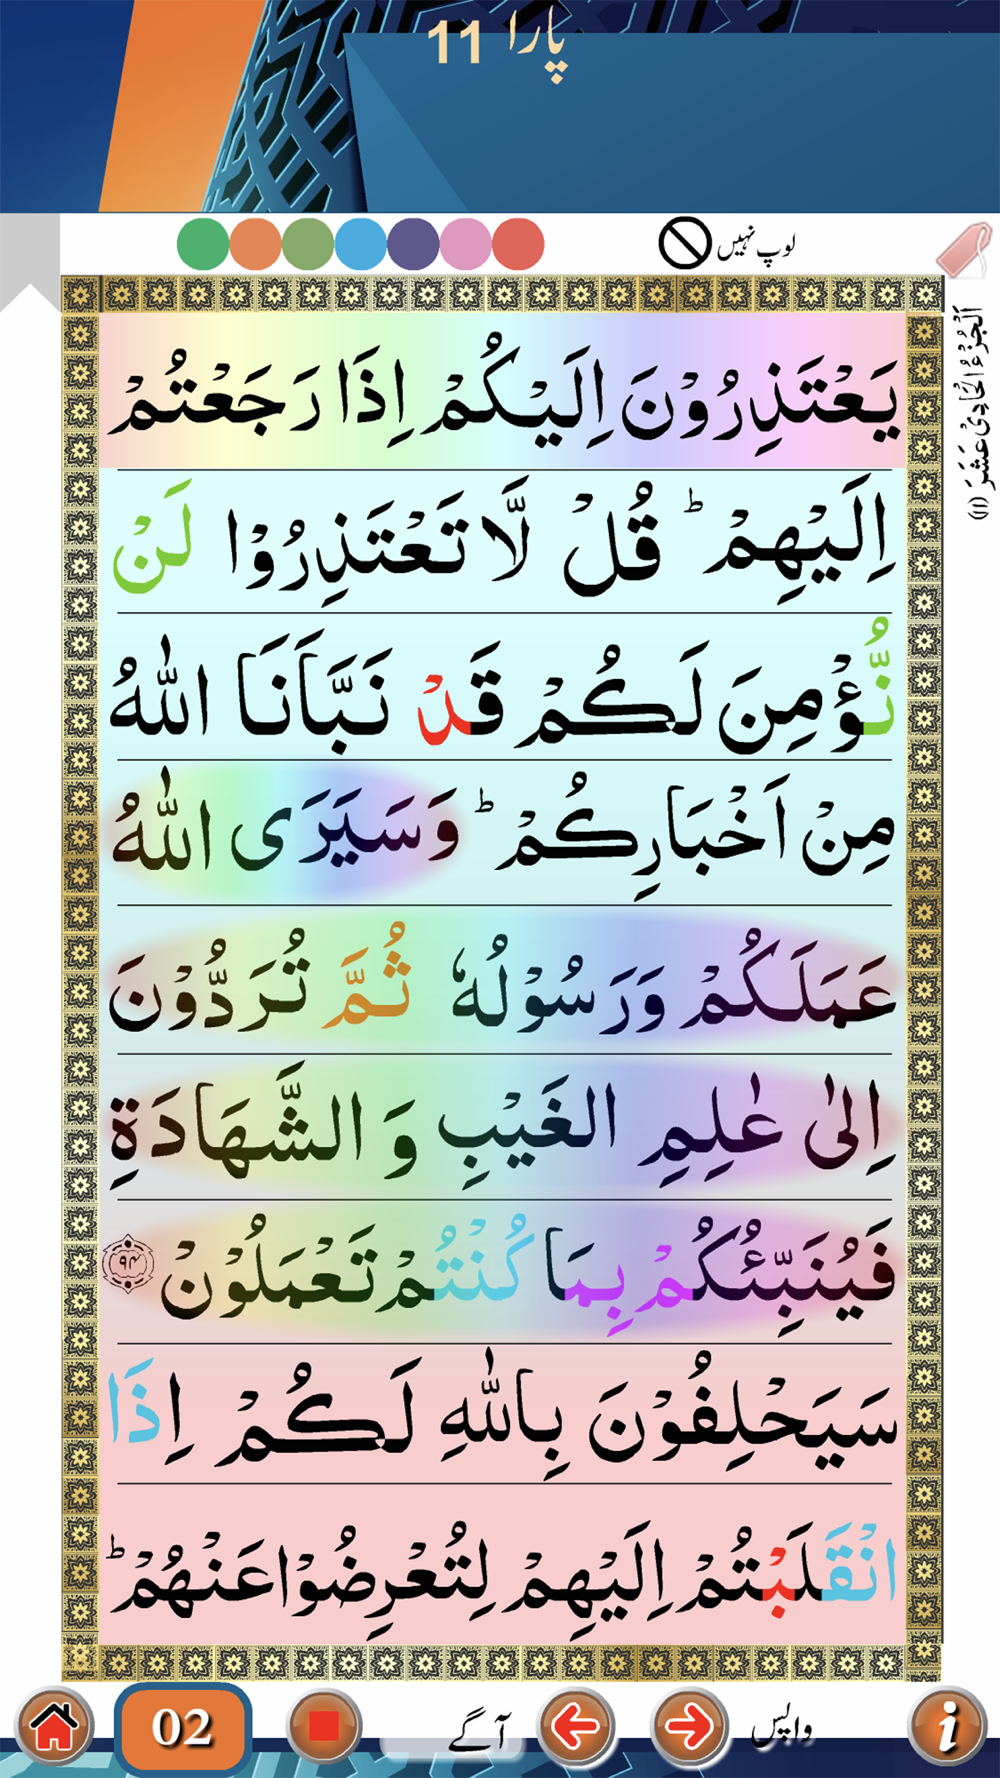 پارا 11
لوپ نہیں
اَلْجُزْءُ الْحَادِیْ عَشَرَ (۱۱)
یَعْتَذِرُوْنَ اِلَیْكُمْ اِذَا رَجَعْتُمْ
اِلَیْهِمْ ؕ قُلْ لَّا تَعْتَذِرُوْا لَنْ
نُّؤْمِنَ لَكُمْ قَدْ نَبَّاَنَا اللّٰهُ
مِنْ اَخْبَارِكُمْ ؕ وَسَیَرَی اللّٰهُ
عَمَلَكُمْ وَرَسُوْلُهٗ ثُمَّ تُرَدُّوْنَ
اِلٰی عٰلِمِ الْغَیْبِ وَ الشَّهَادَةِ
فَیُنَبِّئُكُمْ بِمَا كُنْتُمْ تَعْمَلُوْنَ ۹۴
سَیَحْلِفُوْنَ بِاللّٰهِ لَكُمْ اِذَا
انْقَلَبْتُمْ اِلَیْهِمْ لِتُعْرِضُوْا عَنْهُمْ ؕ
واپس
آگے
02
i